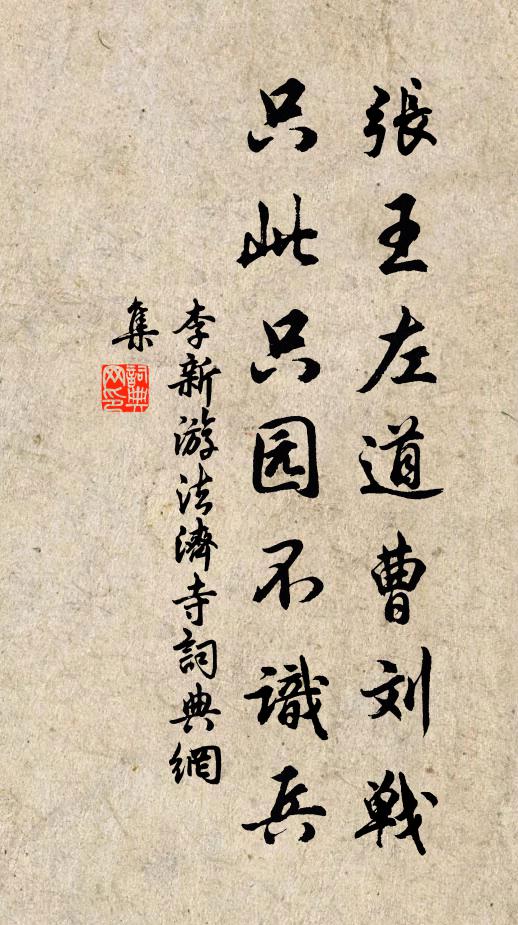 張王左道曹刘戦
只此只园不識兵
李新游法濟寺詞典網
集
詞典网印